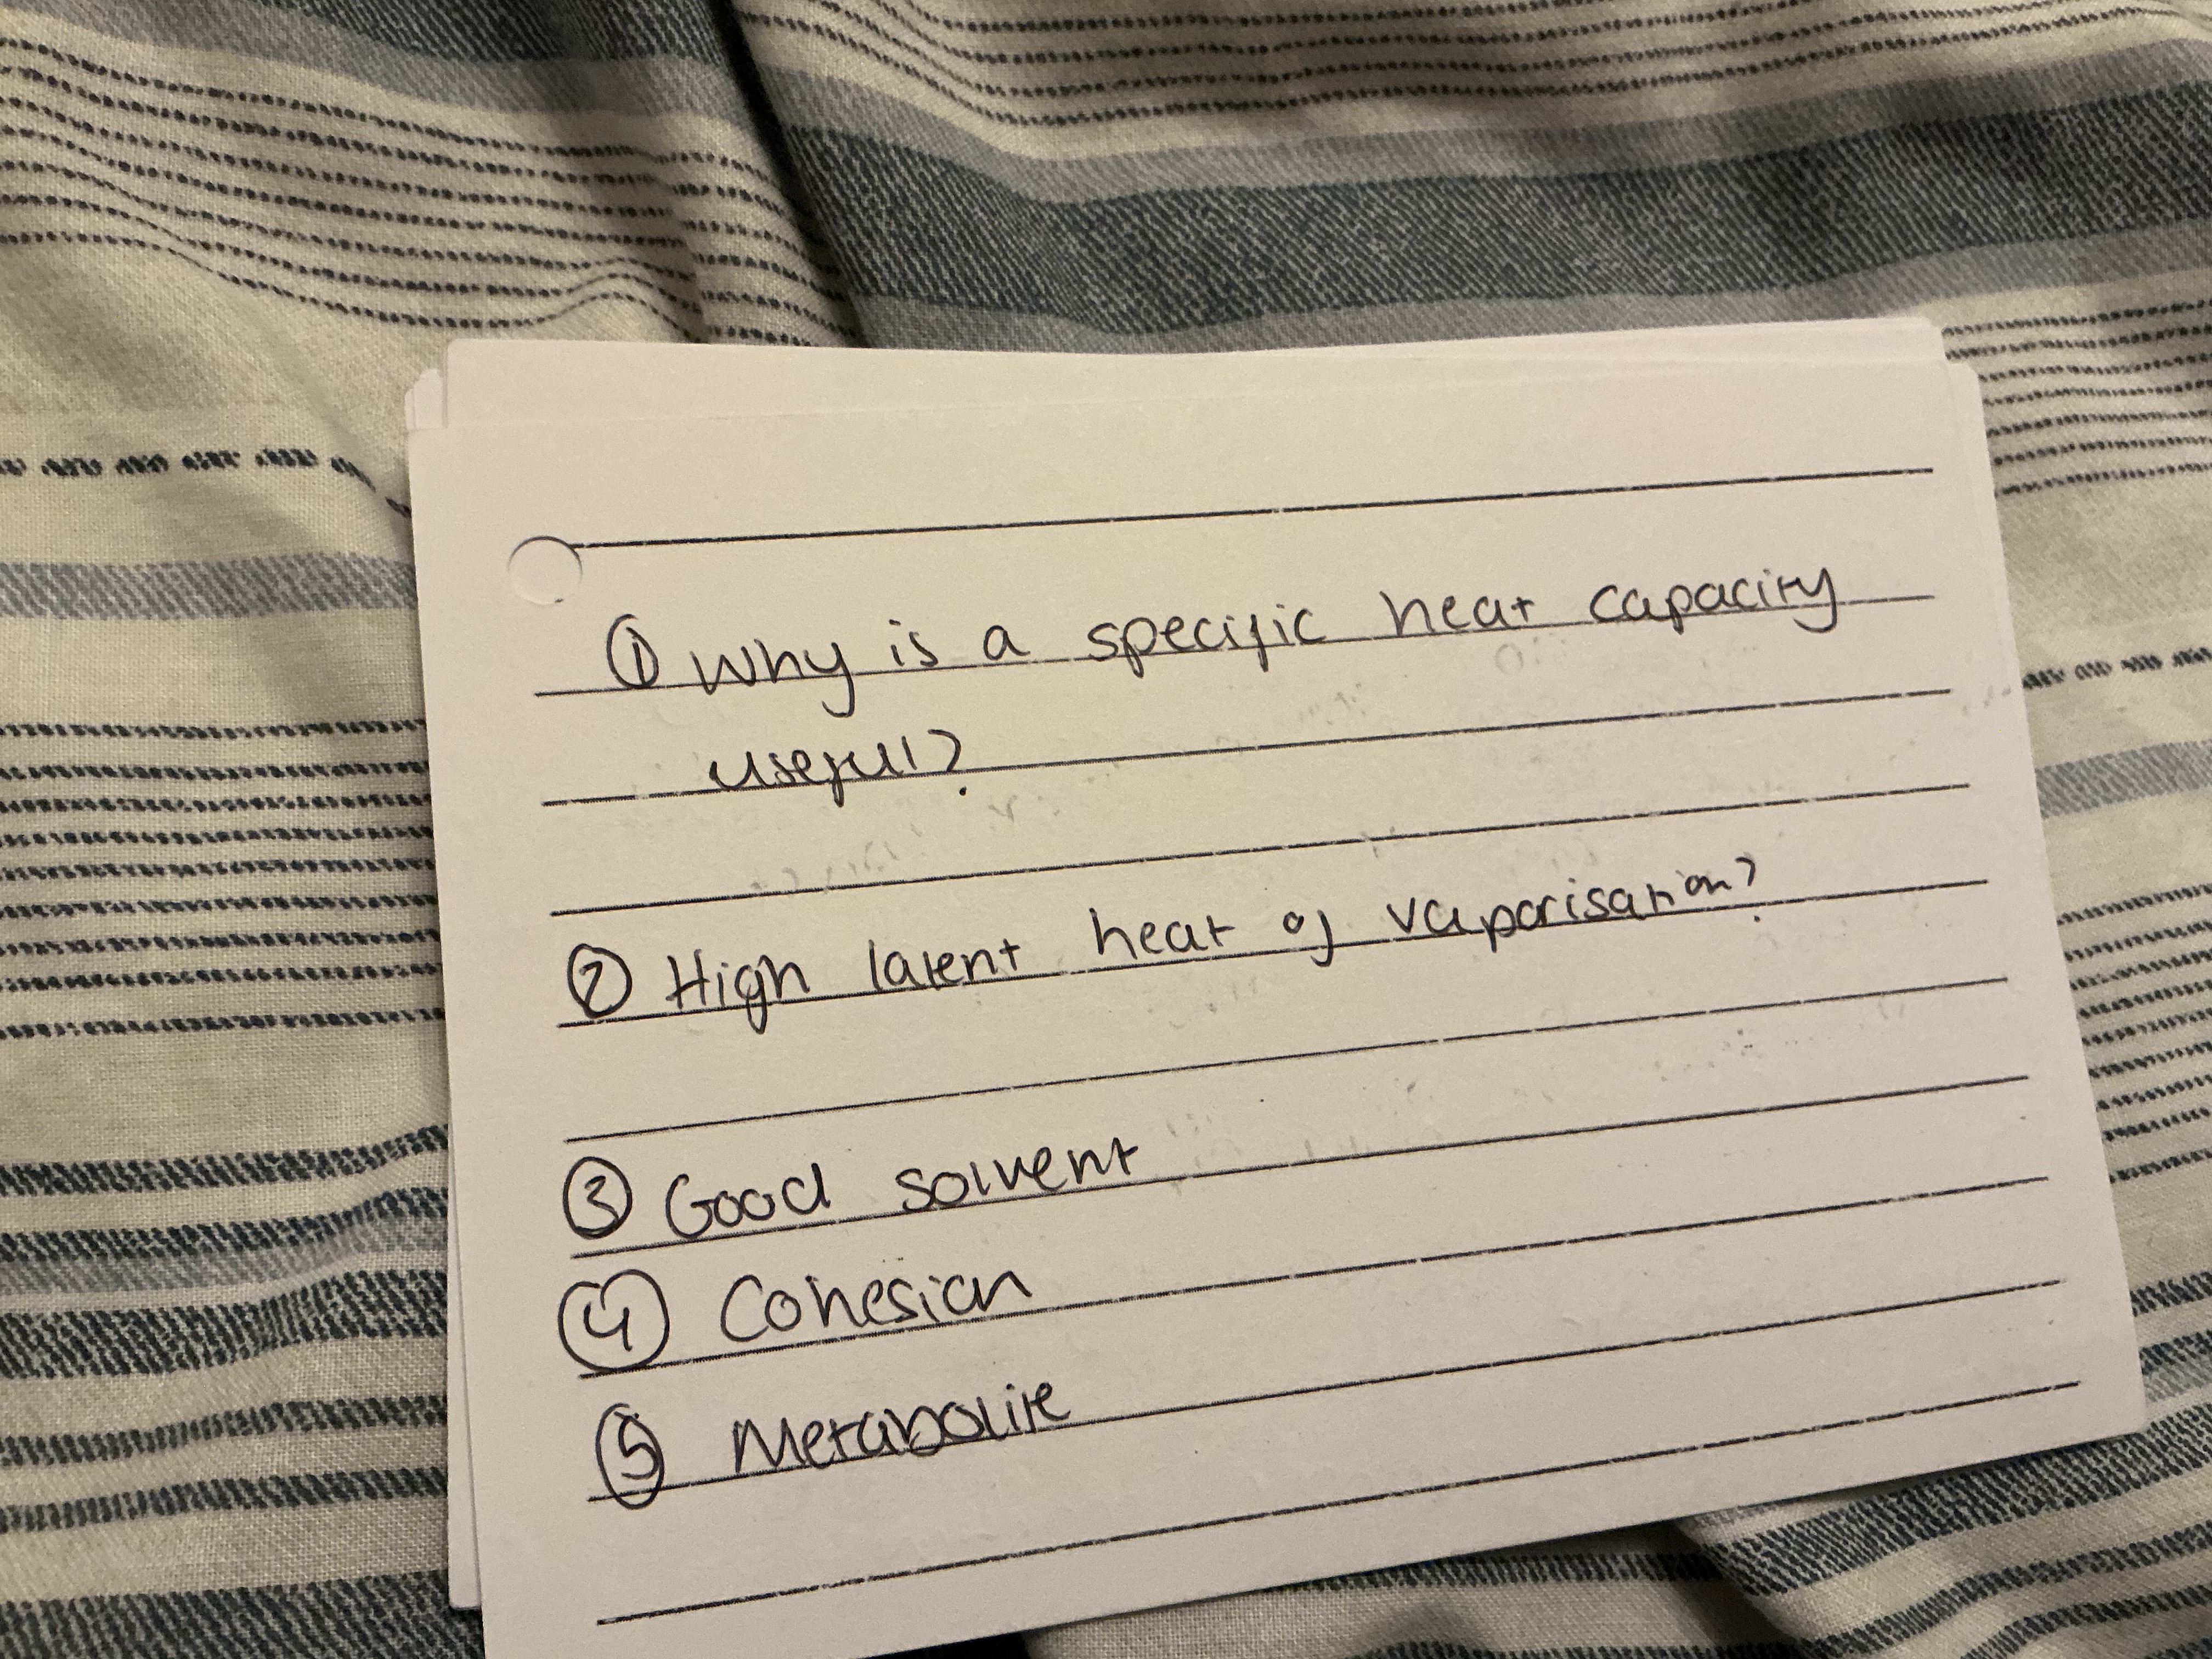 ① Why is a specific heat capacity
useful?
② High latent heat of vaporisation?
③ Good solvent
④ Cohesion
⑤ Metabolite